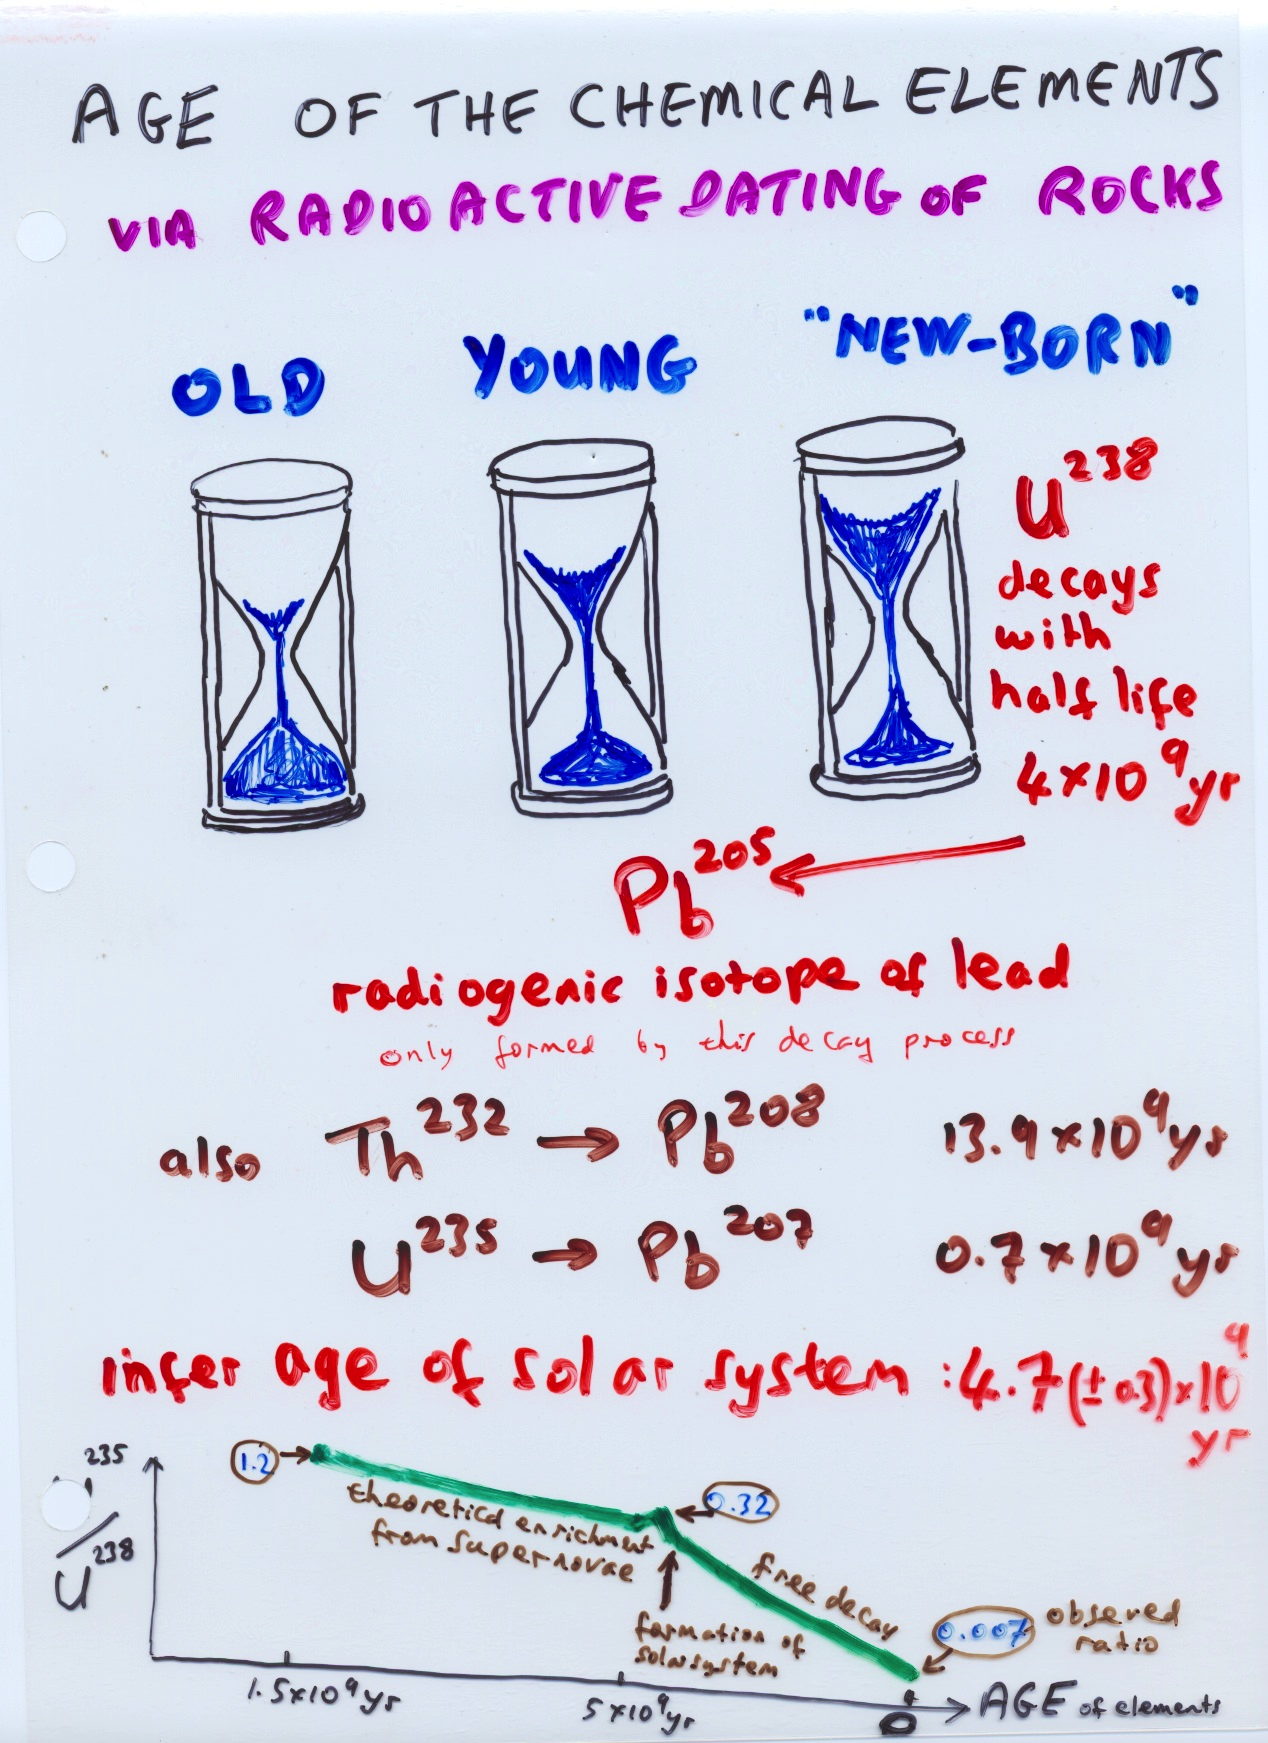 AGE OF THE CHEMICAL ELEMENTS
VIA RADIOACTIVE DATING OF ROCKS
OLD
YOUNG
"NEW-BORN"
U²³⁸
decays
with
half life
4×10⁹yr
Pb²⁰⁵
radiogenic isotope of lead
only formed by this decay process
also Th²³² → Pb²⁰⁸ 13.9×10⁹yr
U²³⁵ → Pb²⁰⁷ 0.7×10⁹yr
infer age of solar system : 4.7(±0.3)×10⁹
yr
235
/
U²³⁸
1.2 →
theoretical enrichment
from supernovae
← 0.32
free decay
formation of
solar system
0.007 observed
ratio
1.5×10⁹yr
5×10⁹yr
0
AGE of elements